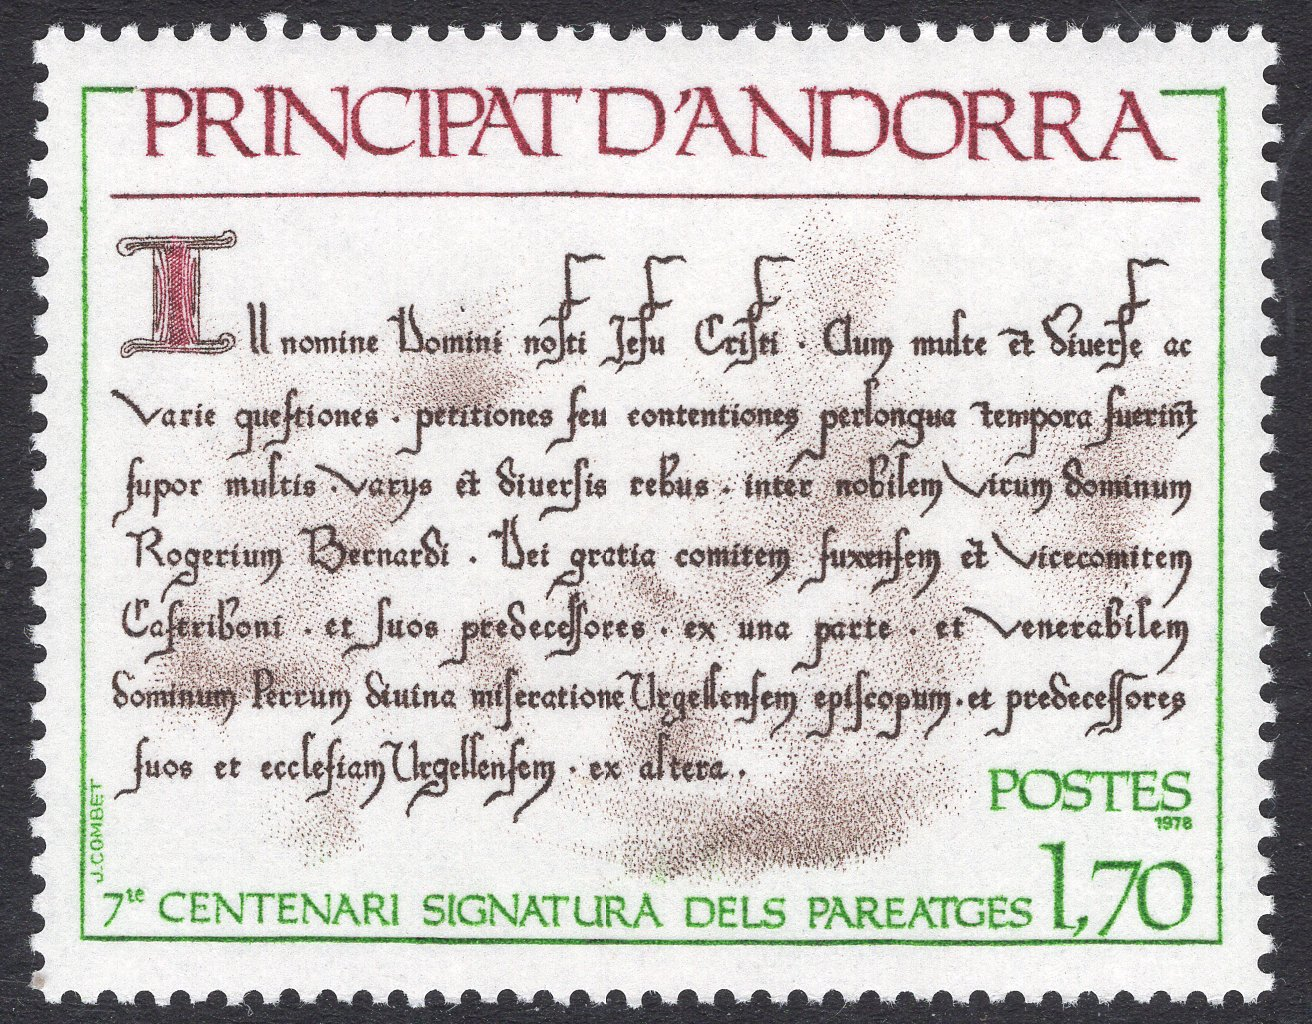 PRINCIPAT D'ANDORRA
IN nomine Domini nostri Jesu Cristi . Cum multe et diuerse ac
varie questiones . petitiones seu contentiones perlongua tempora fuerint
super multis . varys et diuersis rebus . inter nobilem virum dominum
Rogerium Bernardi . Dei gratia comitem fuxensem et vicecomitem
Castriboni . et suos predecessores . ex una parte . et venerabilem
dominum Petrum diuina miseratione Urgellensem episcopum . et predecessores
suos et ecclesiam Urgellensem . ex altera .
POSTES
1978
1,70
7te CENTENARI SIGNATURA DELS PAREATGES
J. COMBET